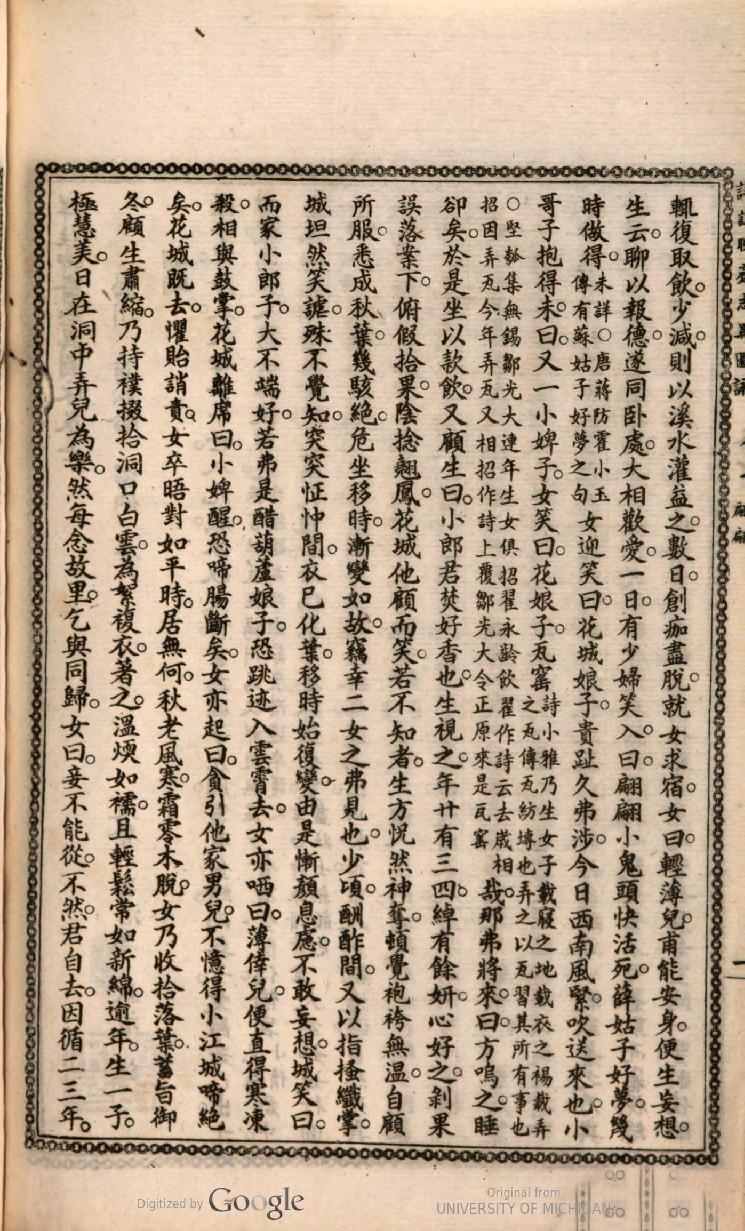 輒復取飲少減則以溪水灌益之數日創痂盡脫就女求宿女曰輕薄兒甫能安身便生妄想
生云聊以報德遂同卧處大相歡愛一日有少婦笑入曰翩翩小鬼頭快活死薛姑子好夢幾
時做得未詳○唐蔣防霍小玉傳有蘇姑子好夢之句女迎笑曰花城娘子貴趾久弗涉今日西南風緊吹送來也小
哥子抱得未曰又一小婢子女笑曰花娘子瓦窰詩小雅乃生女子載寢之地載衣之裼載弄之瓦傳瓦紡塼也弄之以瓦習其所有事也
○堅瓠集無錫鄒光大連年生女俱招翟永齡飲翟作詩云去歲相招因弄瓦今年弄瓦又相招作詩上覆鄒光大令正原來是瓦窰哉那弗將來曰方嗚之睡
卻矣於是坐以款飲又顧生曰小郎君焚好香也生視之年廿有三四綽有餘妍心好之剝果
誤落案下俯假拾果陰捻翹鳳花城他顧而笑若不知者生方怳然神奪頓覺袍袴無溫自顧
所服悉成秋葉幾駭絕危坐移時漸變如故竊幸二女之弗見也少頃酬酢間又以指搔纖掌
城坦然笑謔殊不覺知突突怔忡間衣已化葉移時始復變由是慚顏息慮不敢妄想城笑曰
而家小郎子大不端好若弗是醋葫蘆娘子恐跳迹入雲霄去女亦哂曰薄倖兒便直得寒凍
殺相與鼓掌花城離席曰小婢醒恐啼腸斷矣女亦起曰貪引他家男兒不憶得小江城啼絕
矣花城既去懼貽誚責女卒晤對如平時居無何秋老風寒霜零木脫女乃收拾落葉蓄旨御
冬顧生肅縮乃持襆掇拾洞口白雲為絮複衣著之溫煗如襦且輕鬆常如新綿逾年生一子
極慧美日在洞中弄兒為樂然每念故里乞與同歸女曰妾不能從不然君自去因循二三年
Digitized by Google
Original from
UNIVERSITY OF MICHIGAN